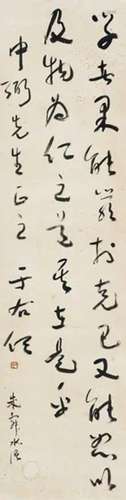 学者果能嚴於克己又能恕以
及物為仁之道其在是乎
先生正之 于右任
朱舜水語